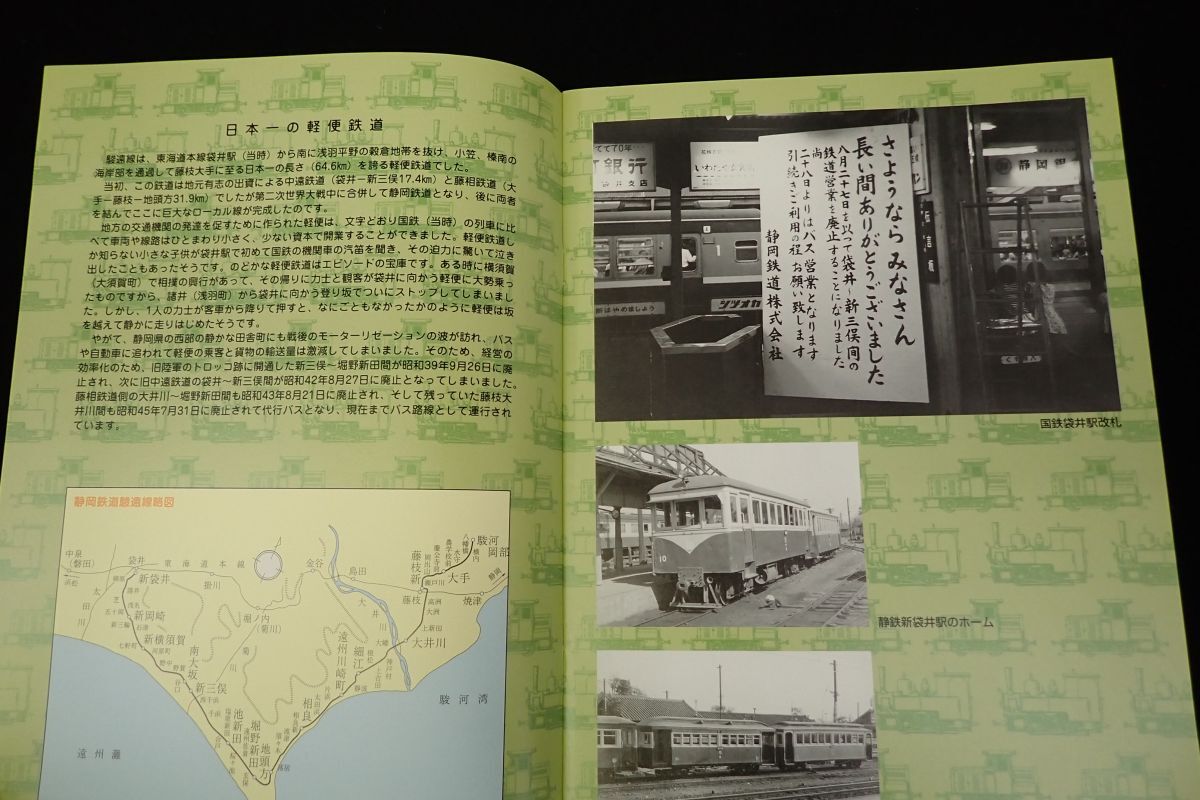 日本一の軽便鉄道
駿遠線は、東海道本線袋井駅（当時）から南に浅羽平野の穀倉地帯を抜け、小笠、榛南の
海岸部を通過して藤枝大手に至る日本一の長さ（64.6km）を誇る軽便鉄道でした。
当初、この鉄道は地元有志の出資による中遠鉄道（袋井－新三俣17.4km）と藤相鉄道（大
手－藤枝－地頭方31.9km）でしたが第二次世界大戦中に合併して静岡鉄道となり、後に両者
を結んでここに巨大なローカル線が完成したのです。
地方の交通機関の発達を促すために作られた軽便は、文字どおり国鉄（当時）の列車に比
べて車両や線路はひとまわり小さく、少ない資本で開業することができました。軽便鉄道し
か知らない小さな子供が袋井駅で初めて国鉄の機関車の汽笛を聞き、その迫力に驚いて泣き
出したこともあったそうです。のどかな軽便鉄道はエピソードの宝庫です。ある時に横須賀
（大須賀町）で相撲の興行があって、その帰りに力士と観客が袋井に向かう軽便に大勢乗っ
たものですから、諸井（浅羽町）から袋井に向かう登り坂でついにストップしてしまいまし
た。しかし、1人の力士が客車から降りて押すと、なにごともなかったかのように軽便は坂
を越えて静かに走りはじめたそうです。
やがて、静岡県の西部の静かな田舎町にも戦後のモーターリゼーションの波が訪れ、バス
や自動車に追われて軽便の乗客と貨物の輸送量は激減してしまいました。そのため、経営の
効率化のため、旧陸軍のトロッコ跡に開通した新三俣～堀野新田間が昭和39年9月26日に廃
止され、次に旧中遠鉄道の袋井～新三俣間が昭和42年8月27日に廃止となってしまいました。
藤相鉄道側の大井川～堀野新田間も昭和43年8月21日に廃止され、そして残っていた藤枝大
井川間も昭和45年7月31日に廃止されて代行バスとなり、現在までバス路線として運行され
ています。
静岡鉄道駿遠線略図
中泉
（磐田）
浜松
袋井
東海道本線
新袋井
掛川
金谷
島田
藤枝新
藤枝
大手
駿河岡部
焼津
静岡
太田川
新岡崎
新横須賀
七軒町
南大坂
新三俣
堀ノ内
（菊川）
菊川
大井川
大井川
高洲
大洲
上新田
細江
遠州川崎町
静波
片浜
相良
池新田
堀野新田
地頭方
遠州灘
駿河湾
さようならみなさん
長い間ありがとうございました
八月二十七日を以って袋井～新三俣間の
鉄道営業を廃止することになりました
尚
二十八日よりはバス営業となります
引続きご利用の程お願い致します
静岡鉄道株式会社
静岡銀行
シヅオカ
国鉄袋井駅改札
10
静鉄新袋井駅のホーム